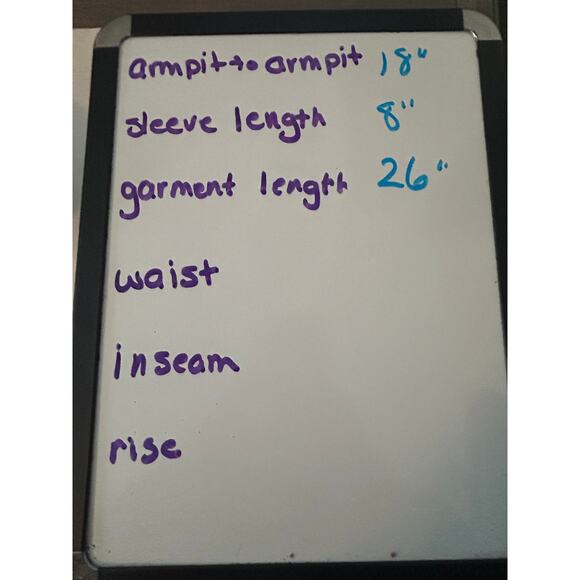 armpit to armpit 18"
sleeve length 8"
garment length 26"
waist
inseam
rise